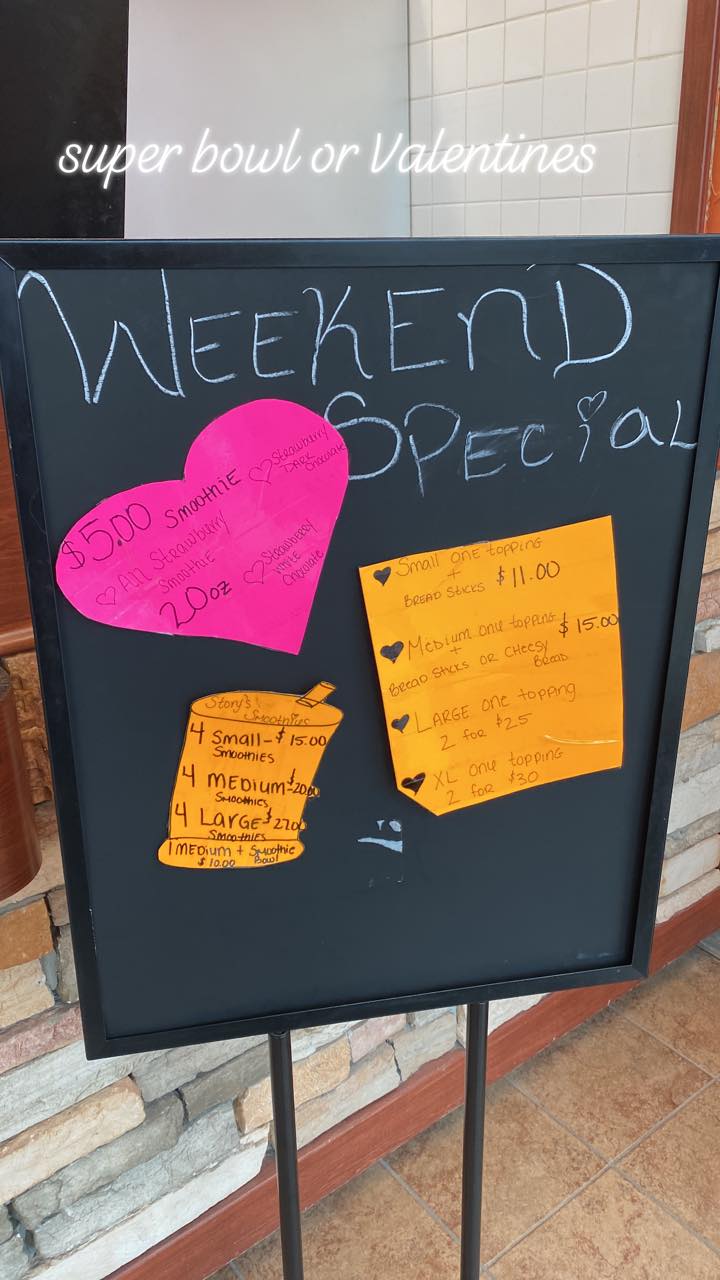 super bowl or Valentines
WEEKEnD
SPECiaL
$5.00 SMOOTHiE
All Strawberry
Smoothie
20oz
Strawberry
DARK
Chocolate
STRAWBERRY
WHITE
Chocolate
Small one topping
+
BREAD STICKS $11.00
MEDIUM one topping $15.00
+
BREAD STICKS OR CHEESY
BREAD
LARGE one topping
2 for $25
XL one topping
2 for $30
Story's
Smoothies
4 Small-$15.00
SMOOTHIES
4 MEDIUM-$20.00
SMOOTHIES
4 LARGE-$27.00
SMOOTHIES
1 MEDIUM + Smoothie
$10.00 Bowl